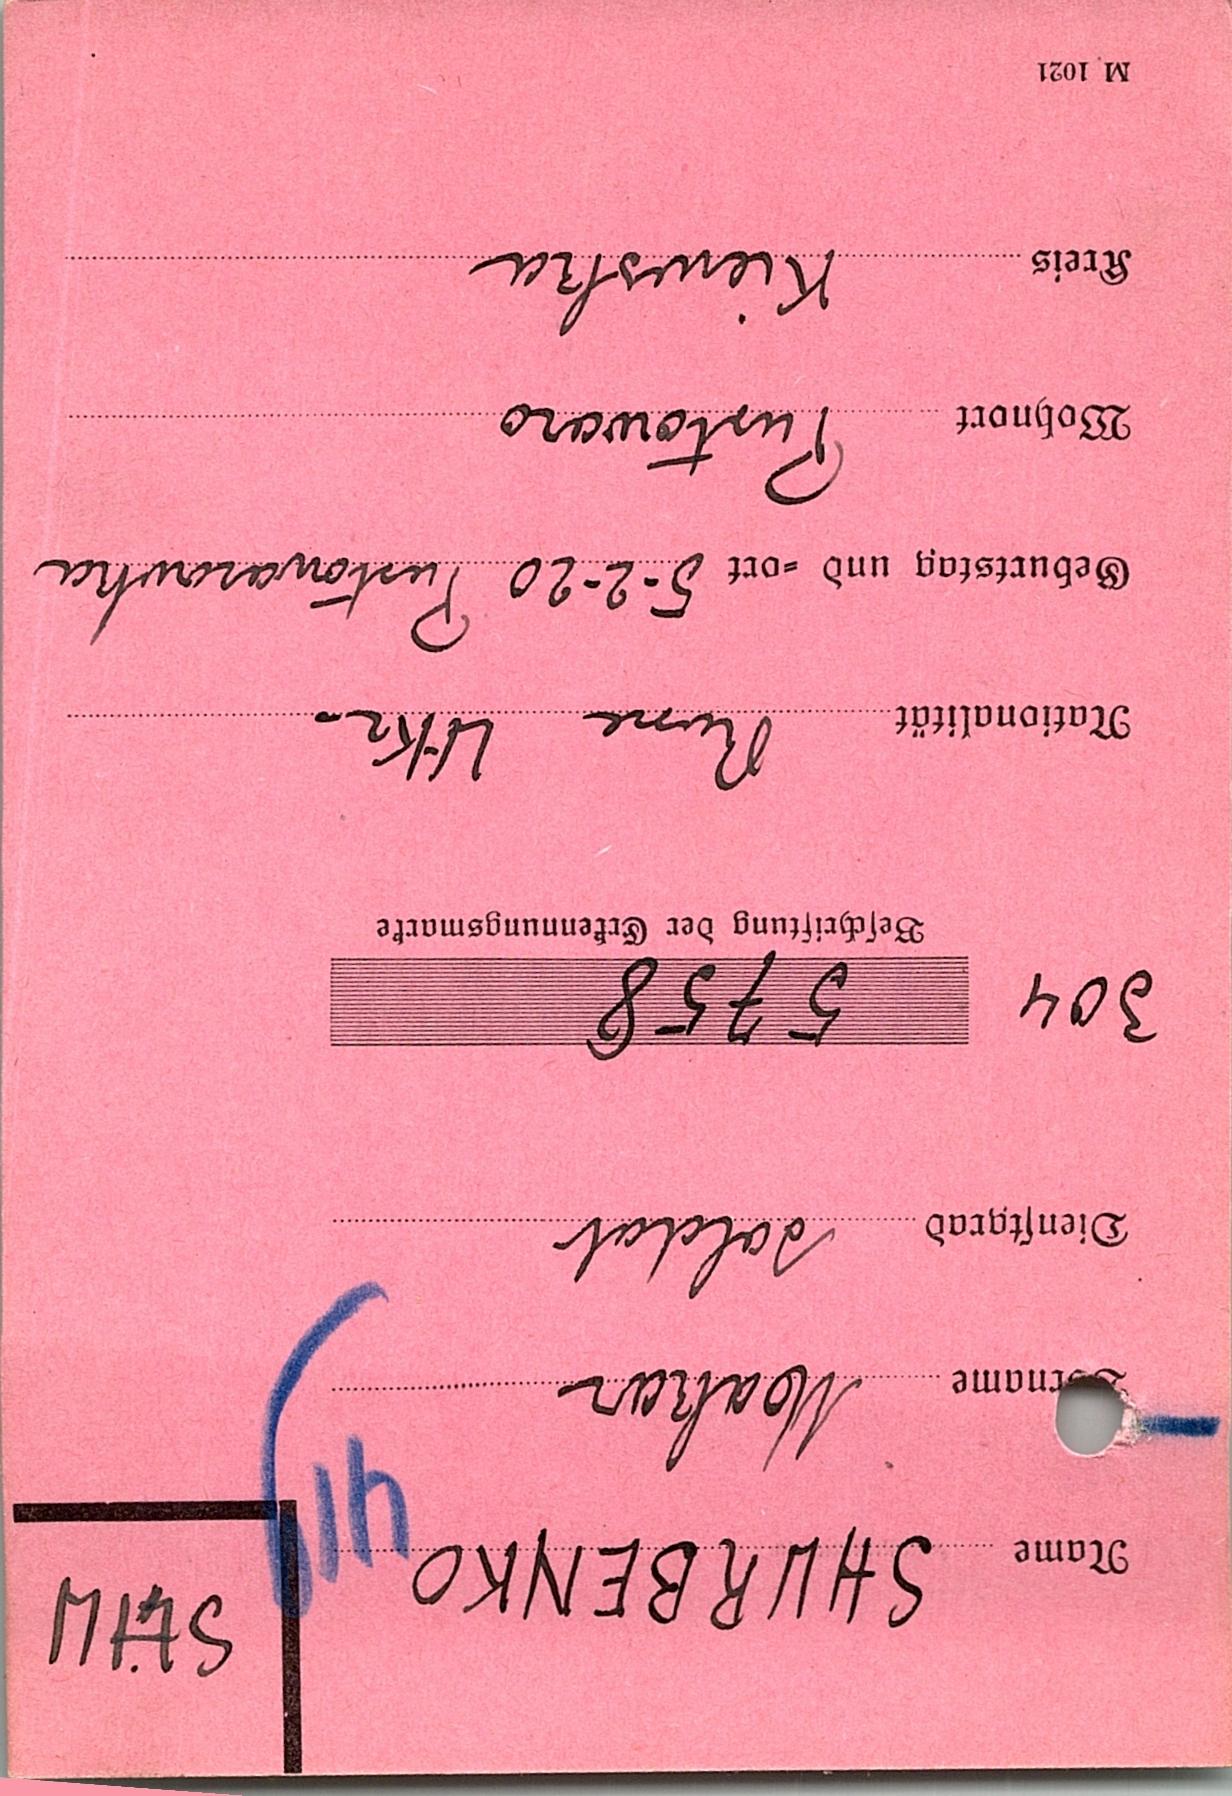 SHU
Name SHURBENKO
411
Vorname Makar
Dienstgrad Soldat
304 5758
Beschriftung der Erkennungsmarke
Nationalität Russe Ukr.
Geburtstag und =ort 5-2-20 Pustowarowka
Wohnort Pustowaro
Kreis Kiewska
M 1021